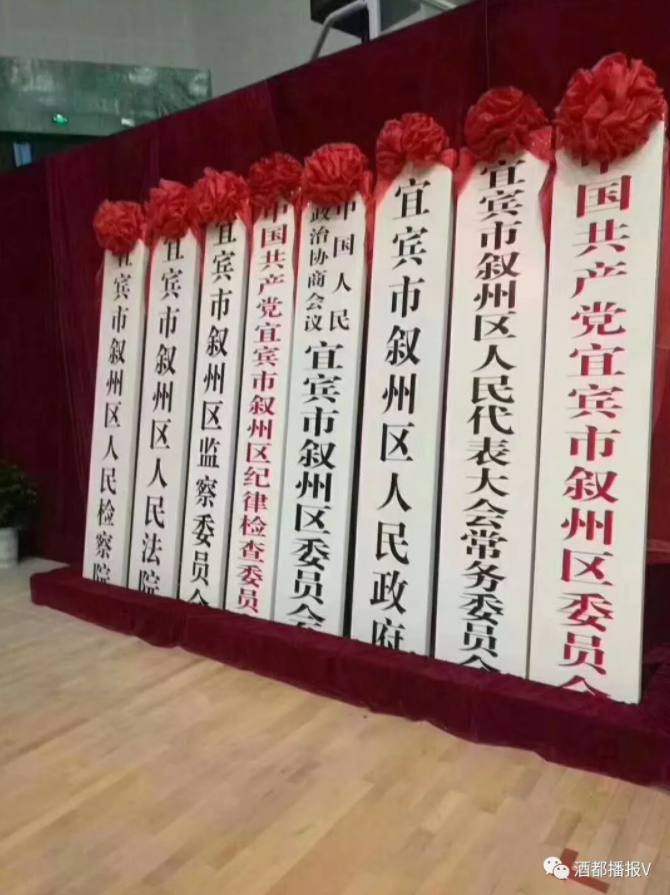 宜宾市叙州区人民检察院
宜宾市叙州区人民法院
宜宾市叙州区监察委员会
中国共产党宜宾市叙州区纪律检查委员
中国人民
政治协商会议
宜宾市叙州区委员会
宜宾市叙州区人民政府
宜宾市叙州区人民代表大会常务委员会
中国共产党宜宾市叙州区委员会
酒都播报V